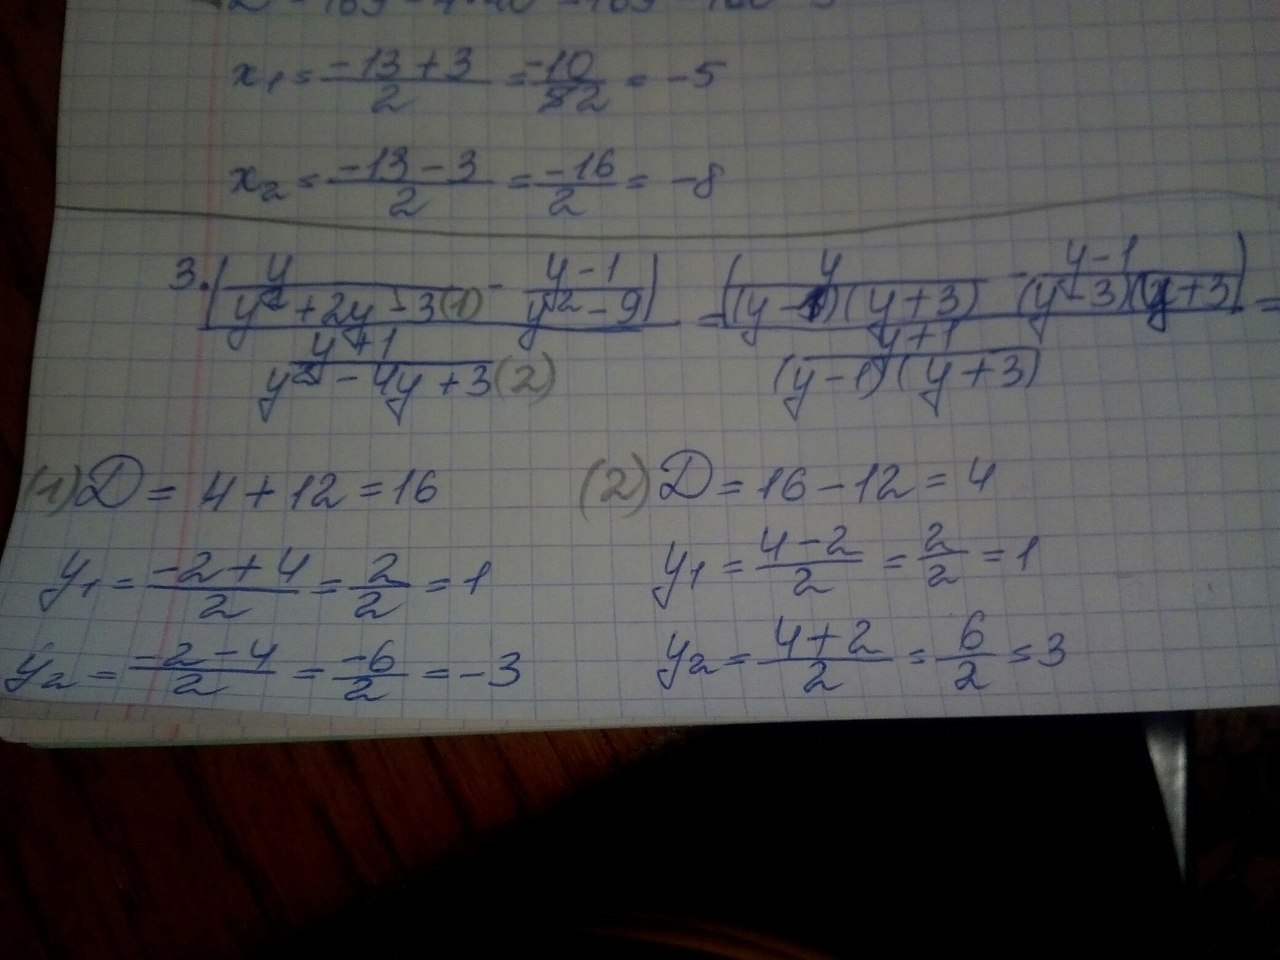 x₁ = (-13+3)/2 = -10/2 = -5
x₂ = (-13-3)/2 = -16/2 = -8
3. (y/(y²+2y-3(1)) - (y-1)/(y²-9)) / ((y+1)/(y²-4y+3(2))) = (y/((y-1)(y+3)) - (y-1)/((y-3)(y+3))) / ((y+1)/((y-1)(y+3))) =
(1) D = 4+12 = 16 (2) D = 16-12 = 4
y₁ = (-2+4)/2 = 2/2 = 1 y₁ = (4-2)/2 = 2/2 = 1
y₂ = (-2-4)/2 = -6/2 = -3 y₂ = (4+2)/2 = 6/2 = 3